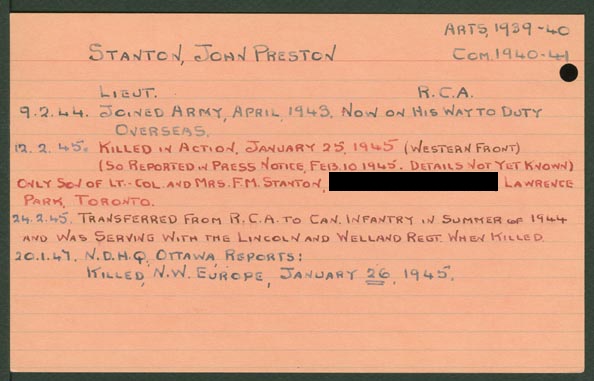 ARTS, 1939-40
STANTON, JOHN PRESTON COM. 1940-41
LIEUT. R.C.A.
9.2.44. JOINED ARMY, APRIL, 1943. NOW ON HIS WAY TO DUTY
OVERSEAS.
12.2.45. KILLED IN ACTION, JANUARY 25, 1945 (WESTERN FRONT)
(SO REPORTED IN PRESS NOTICE, FEB. 10 1945. DETAILS NOT YET KNOWN)
ONLY SON OF LT.-COL. AND MRS. F.M. STANTON, LAWRENCE
PARK, TORONTO.
24.2.45. TRANSFERRED FROM R.C.A. TO CAN. INFANTRY IN SUMMER OF 1944
AND WAS SERVING WITH THE LINCOLN AND WELLAND REGT. WHEN KILLED.
20.1.47. N.D.H.Q. OTTAWA REPORTS:
KILLED, N.W. EUROPE, JANUARY 26, 1945.